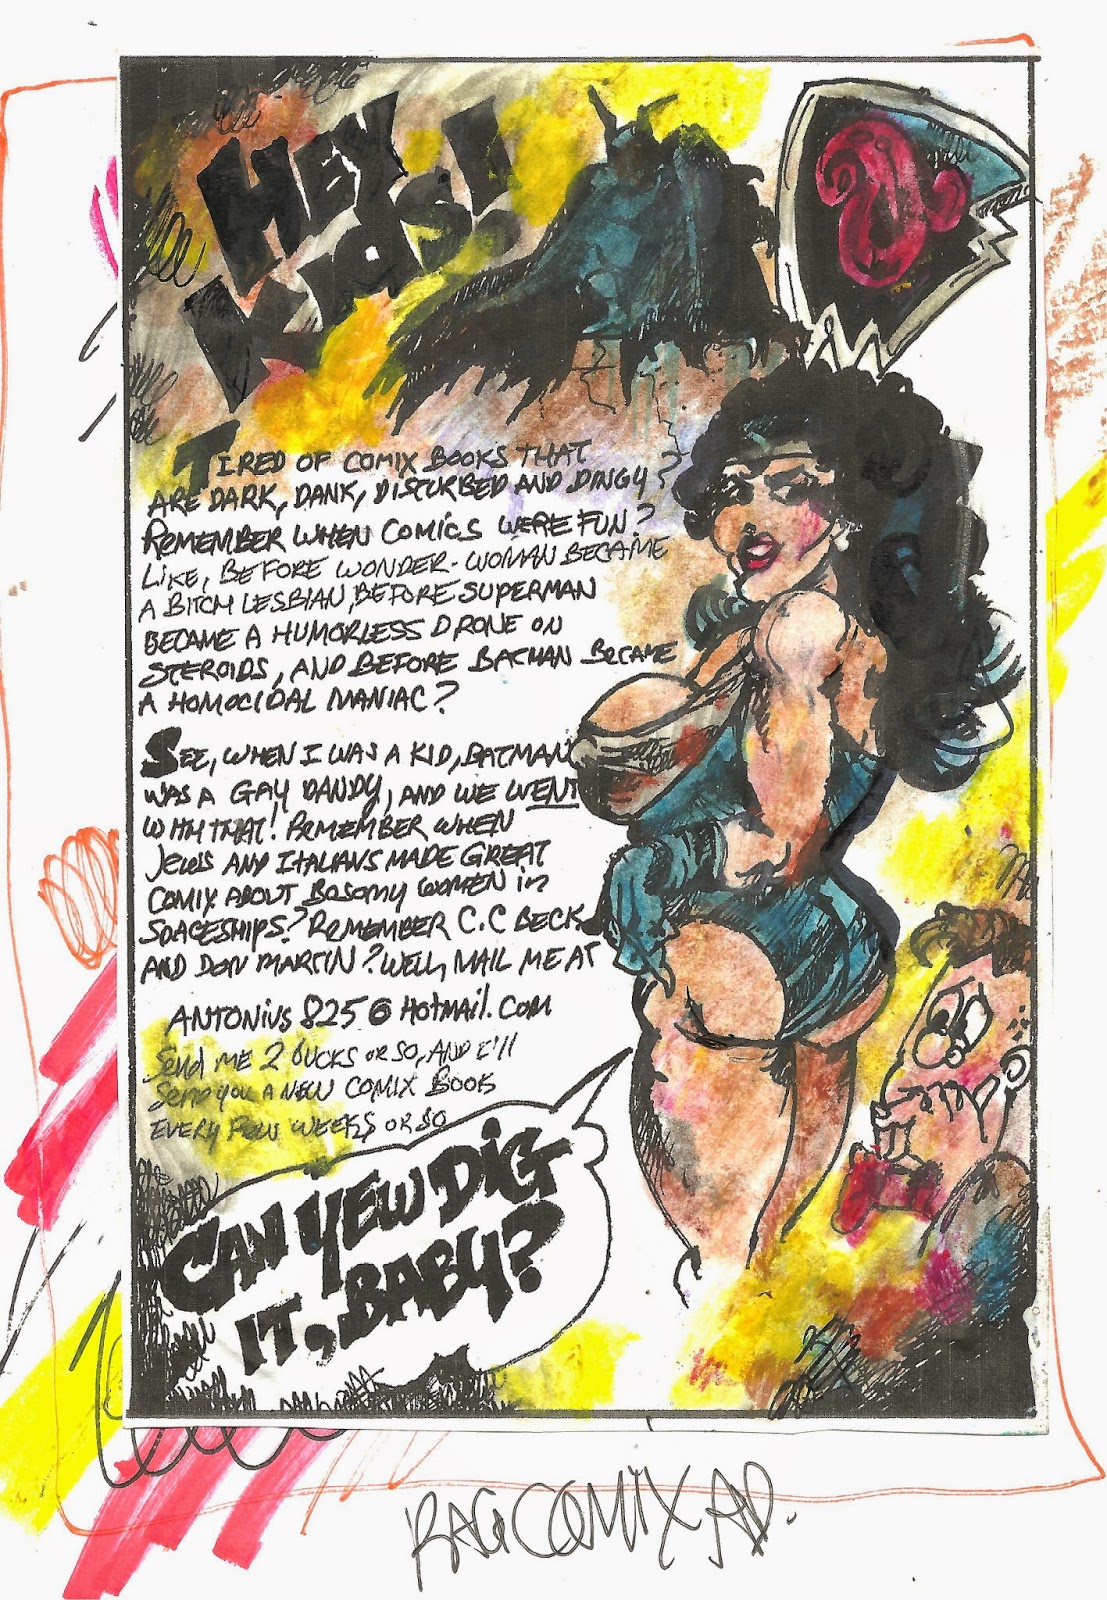 HEY
KIDS!
TIRED OF COMIX BOOKS THAT
ARE DARK, DANK, DISTURBED AND DINGY?
REMEMBER WHEN COMICS WERE FUN?
LIKE, BEFORE WONDER-WOMAN BECAME
A BITCH LESBIAN, BEFORE SUPERMAN
BECAME A HUMORLESS DRONE ON
STEROIDS, AND BEFORE BATMAN BECAME
A HOMOCIDAL MANIAC?
SEE, WHEN I WAS A KID, BATMAN
WAS A GAY DANDY, AND WE WENT
WITH THAT! REMEMBER WHEN
JEWS AND ITALIANS MADE GREAT
COMIX ABOUT BOSOMY WOMEN in
SPACESHIPS? REMEMBER C.C BECK
AND DON MARTIN? WELL, MAIL ME AT
ANTONIUS 825@HOTMAIL.COM
Send ME 2 BUCKS OR SO, AND I'll
SEND YOU A NEW COMIX BOOK
EVERY FEW WEEKS OR SO
CAN YEW DIG
IT, BABY?
RAG COMIX AD.